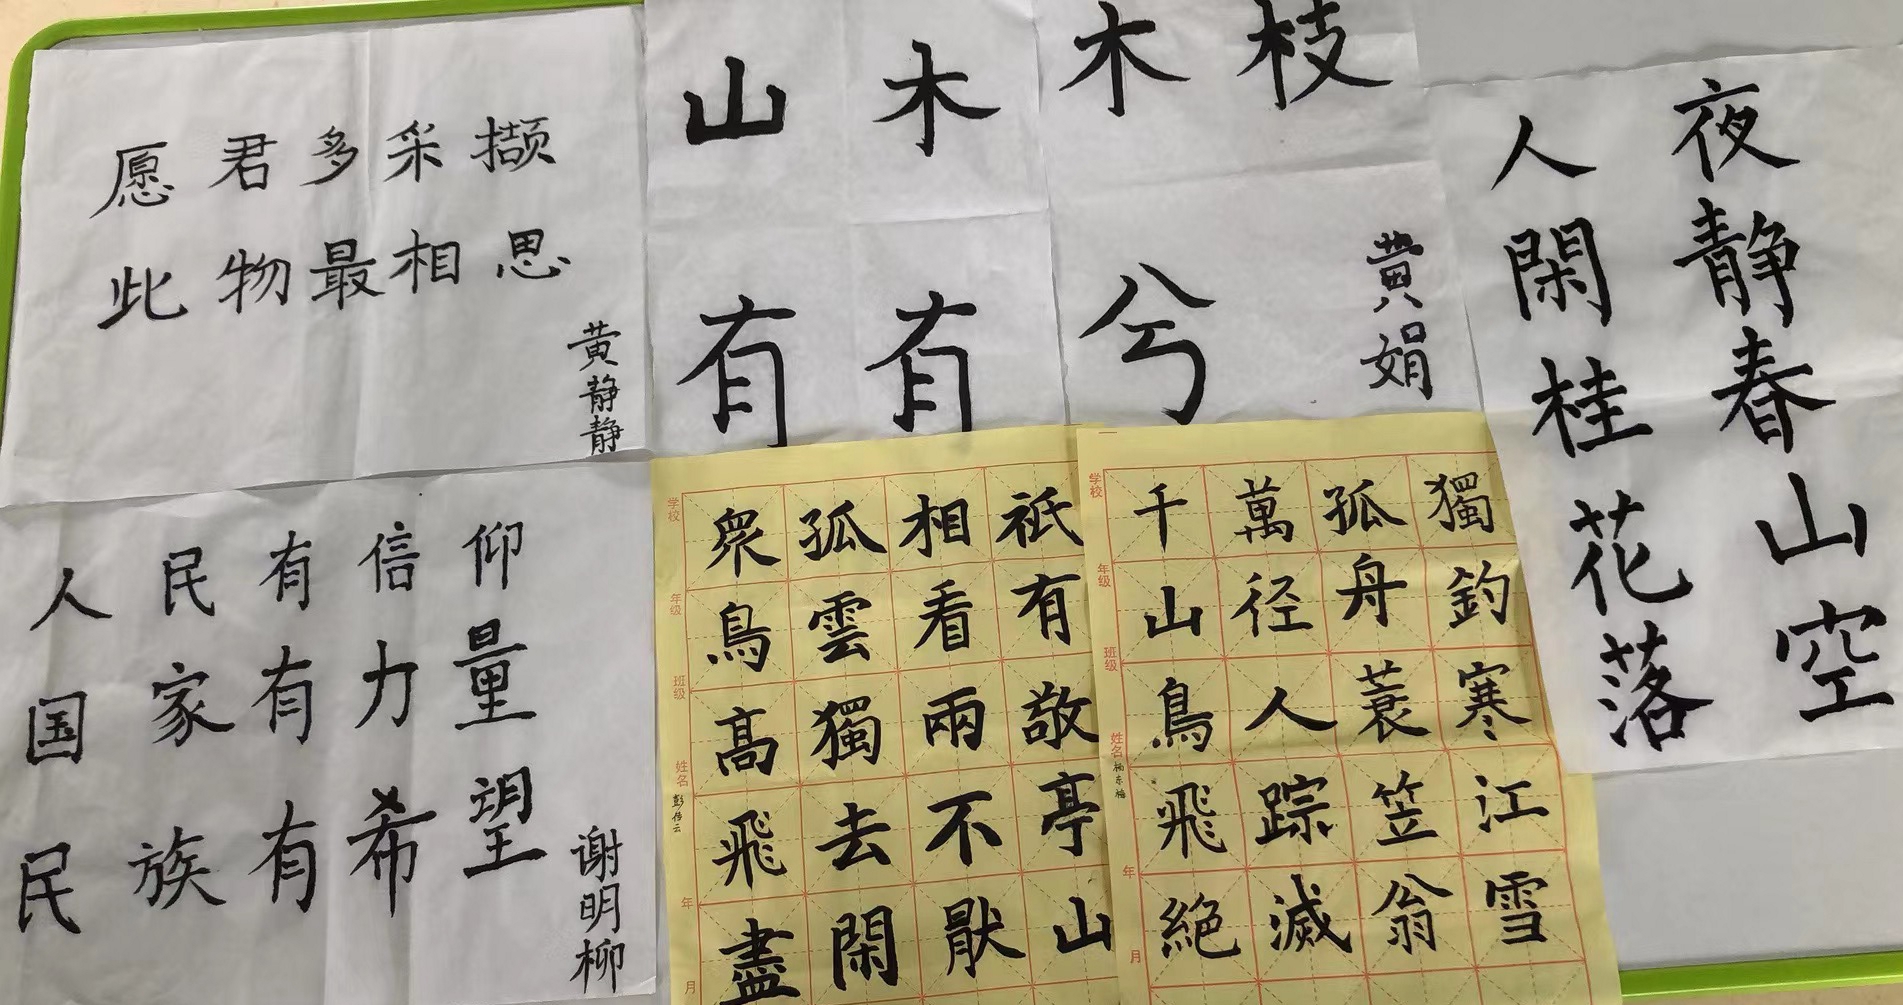 愿君多采撷
此物最相思
黄静静
山木
有有
木枝
兮
黄娟
人閑桂花落
夜静春山空
人民有信仰
国家有力量
民族有希望
谢明柳
学校
年级
班级
姓名
彭传云
年
月
衆鳥高飛盡
孤雲獨去閑
相看兩不厭
祇有敬亭山
学校
年级
班级
姓名
年
月
千山鳥飛絶
萬径人踪滅
孤舟蓑笠翁
獨釣寒江雪